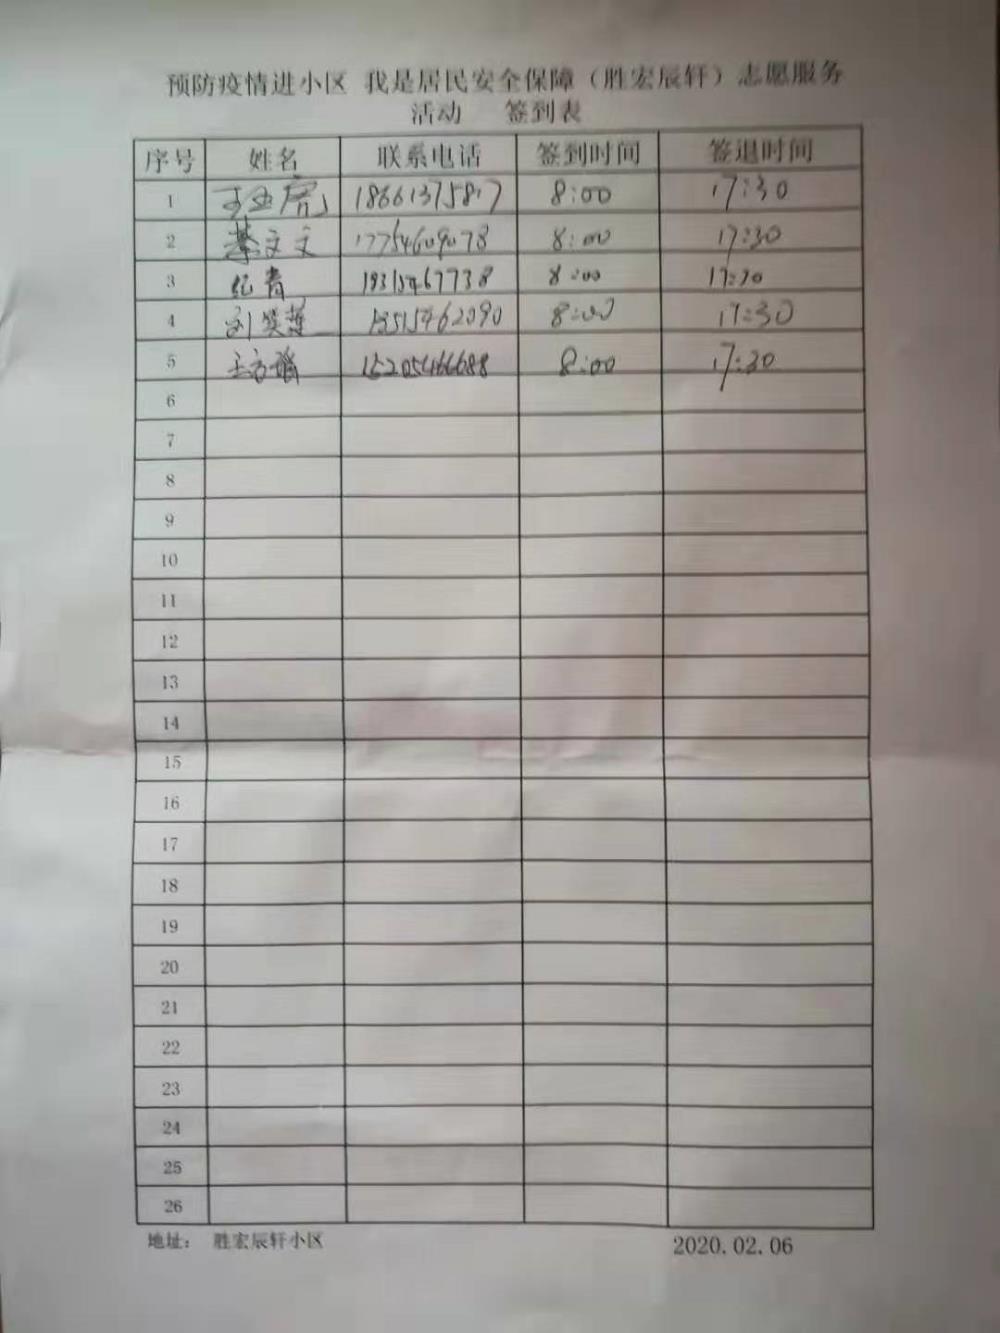 预防疫情进小区 我是居民安全保障（胜宏辰轩）志愿服务
活动 签到表
序号 姓名 联系电话 签到时间 签退时间
1 18661375817 8:00 17:30
2 綦文文 17754609078 8:00 17:30
3 纪青 19315467738 8:00 17:30
4 刘笑莲 15515462090 8:00 17:30
5 15205466688 8:00 17:30
6
7
8
9
10
11
12
13
14
15
16
17
18
19
20
21
22
23
24
25
26
地址： 胜宏辰轩小区 2020.02.06